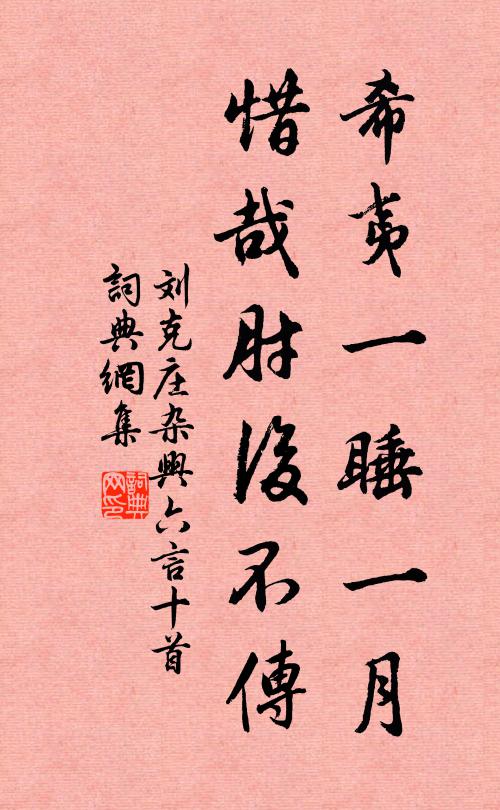 希夷一睡一月
惜哉肘後不傳
刘克庄杂興六言十首
詞典網集
詞典网印